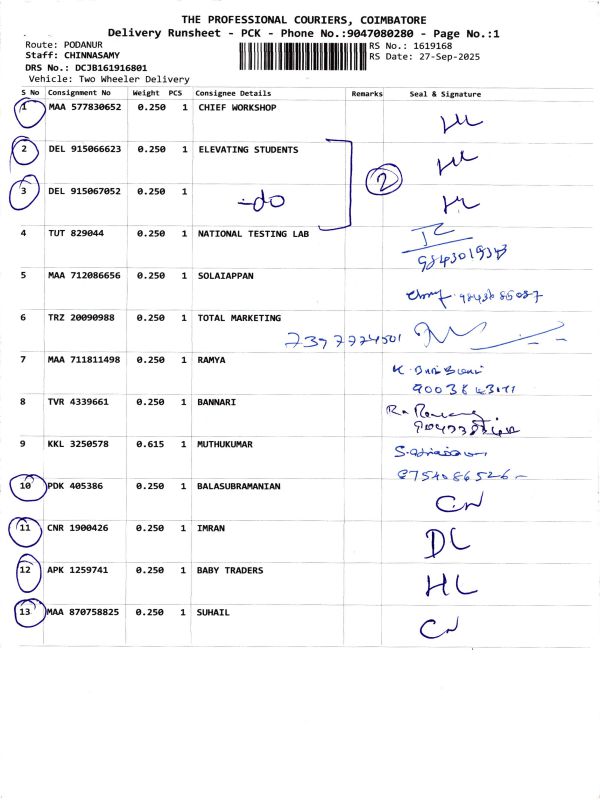 THE PROFESSIONAL COURIERS, COIMBATORE
Delivery Runsheet - PCK - Phone No.:9047080280 - Page No.:1
Route: PODANUR
RS No.: 1619168
Staff: CHINNASAMY
RS Date: 27-Sep-2025
DRS No.: DCJB161916801
Vehicle: Two Wheeler Delivery
S No Consignment No Weight PCS Consignee Details Remarks Seal & Signature
1 MAA 577830652 0.250 1 CHIEF WORKSHOP
2 DEL 915066623 0.250 1 ELEVATING STUDENTS
2
3 DEL 915067052 0.250 1 -do
4 TUT 829044 0.250 1 NATIONAL TESTING LAB
9843019343
5 MAA 712086656 0.250 1 SOLAIAPPAN
6 TRZ 20090988 0.250 1 TOTAL MARKETING
7397774501
7 MAA 711811498 0.250 1 RAMYA
8 TVR 4339661 0.250 1 BANNARI
9 KKL 3250578 0.615 1 MUTHUKUMAR
8754086526
10 PDK 405386 0.250 1 BALASUBRAMANIAN CN
11 CNR 1900426 0.250 1 IMRAN DL
12 APK 1259741 0.250 1 BABY TRADERS HL
13 MAA 870758825 0.250 1 SUHAIL CN